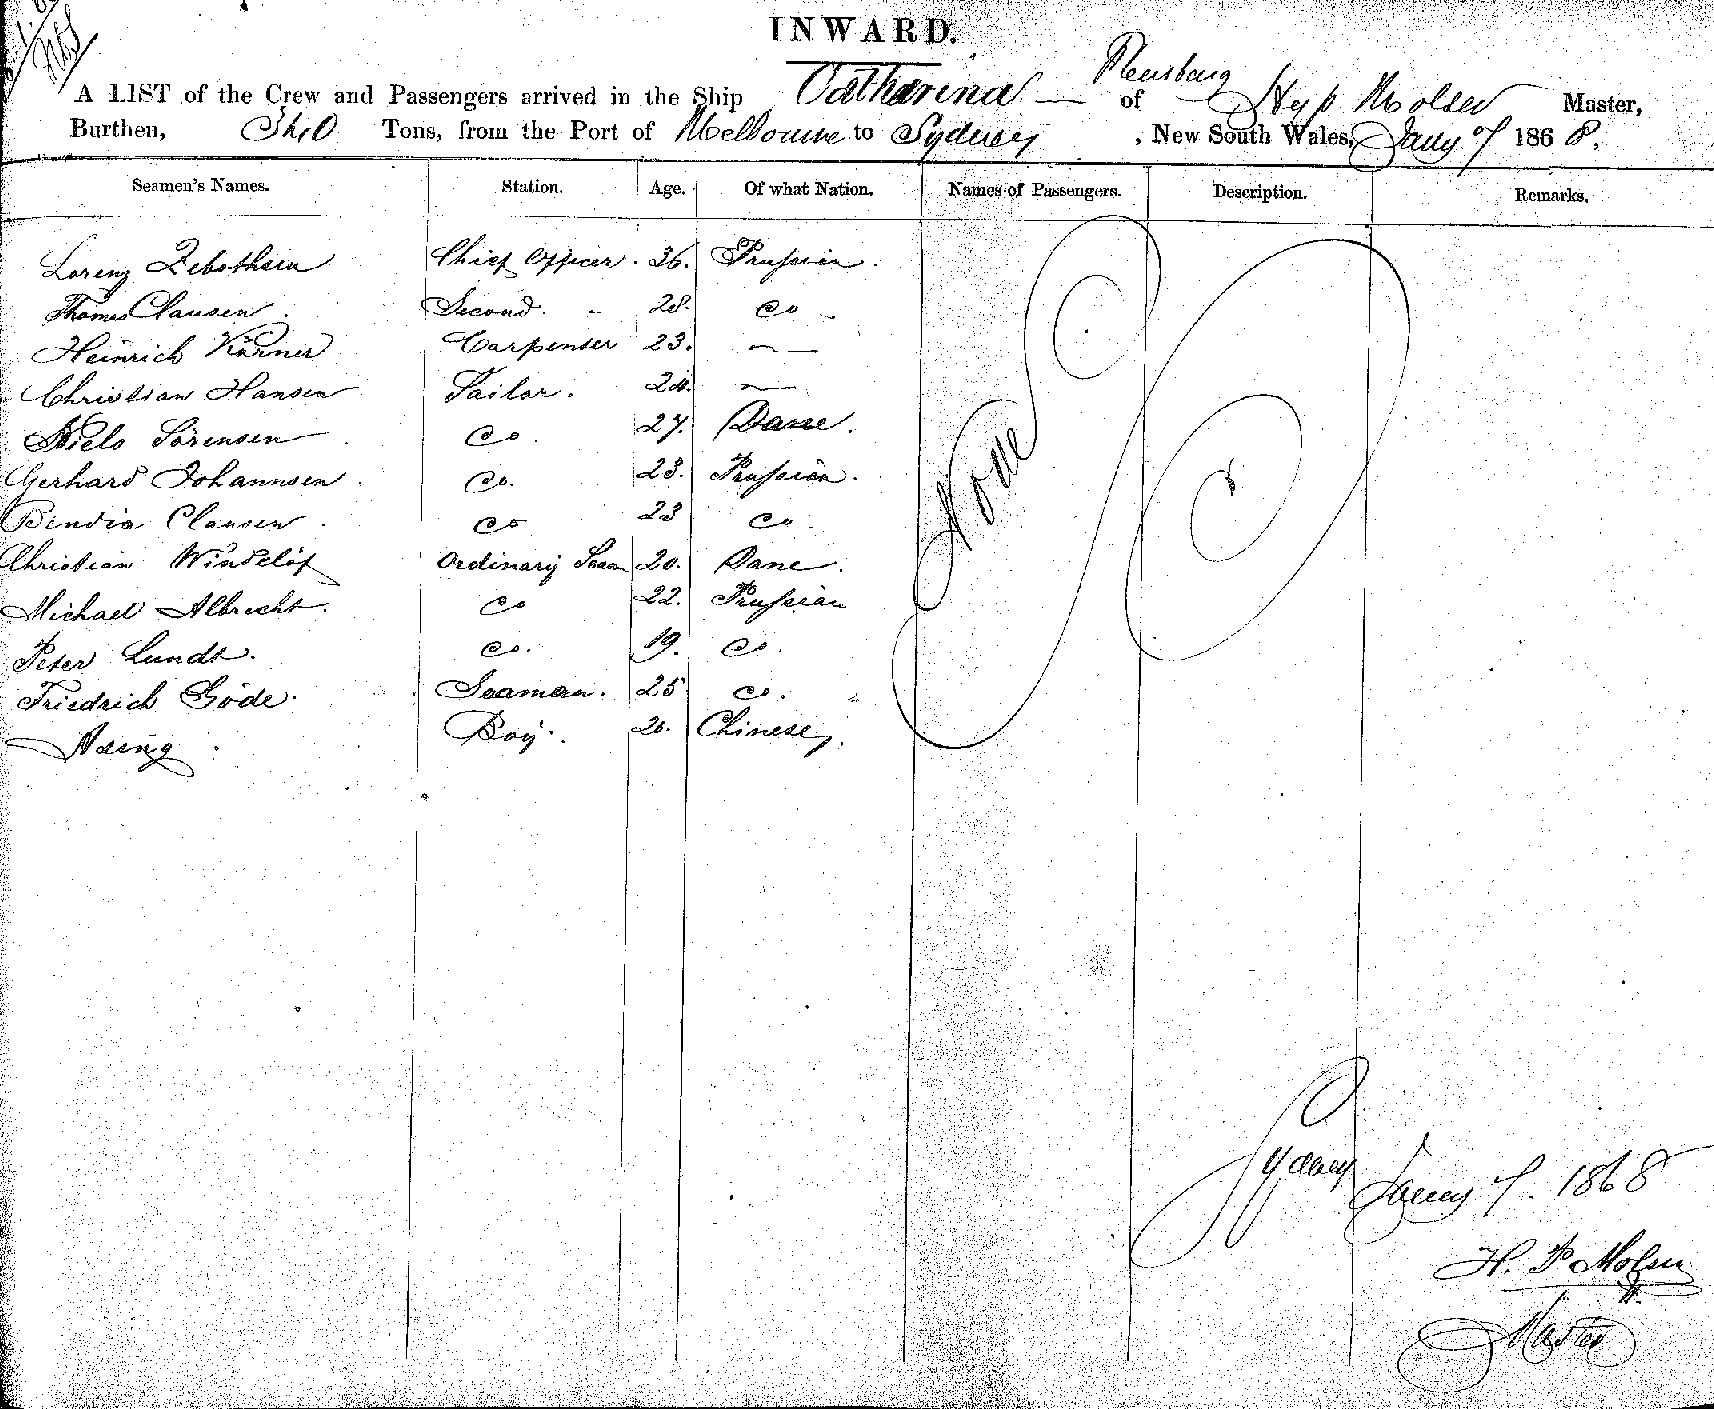 INWARD.
A LIST of the Crew and Passengers arrived in the Ship Catharina of Flensburg Molsen Master,
Burthen, Tons, from the Port of Melbourne to Sydney, New South Wales, Jany 7 1868.
Seamen's Names. Station. Age. Of what Nation. Names of Passengers. Description. Remarks.
Lorenz Chief Officer. 36. Prussian.
Thomas Clausen. Second. 28. do
Heinrich Körner Carpenter 23. —
Christian Hansen Sailor. 24. —
Niels Sörensen do. 27. Dane.
Gerhard Johannsen do. 23. Prussian.
Clausen do 23 do
Christian Windelöf Ordinary Seam 20. Dane.
Michael Albrecht. do 22. Prussian
Peter Lundt. do. 19. do.
Friedrich Göde. Seaman. 25 do.
Aseng Boy. 20. Chinese,
None
Sydney Jany 7. 1868
H. P. Molsen
Master